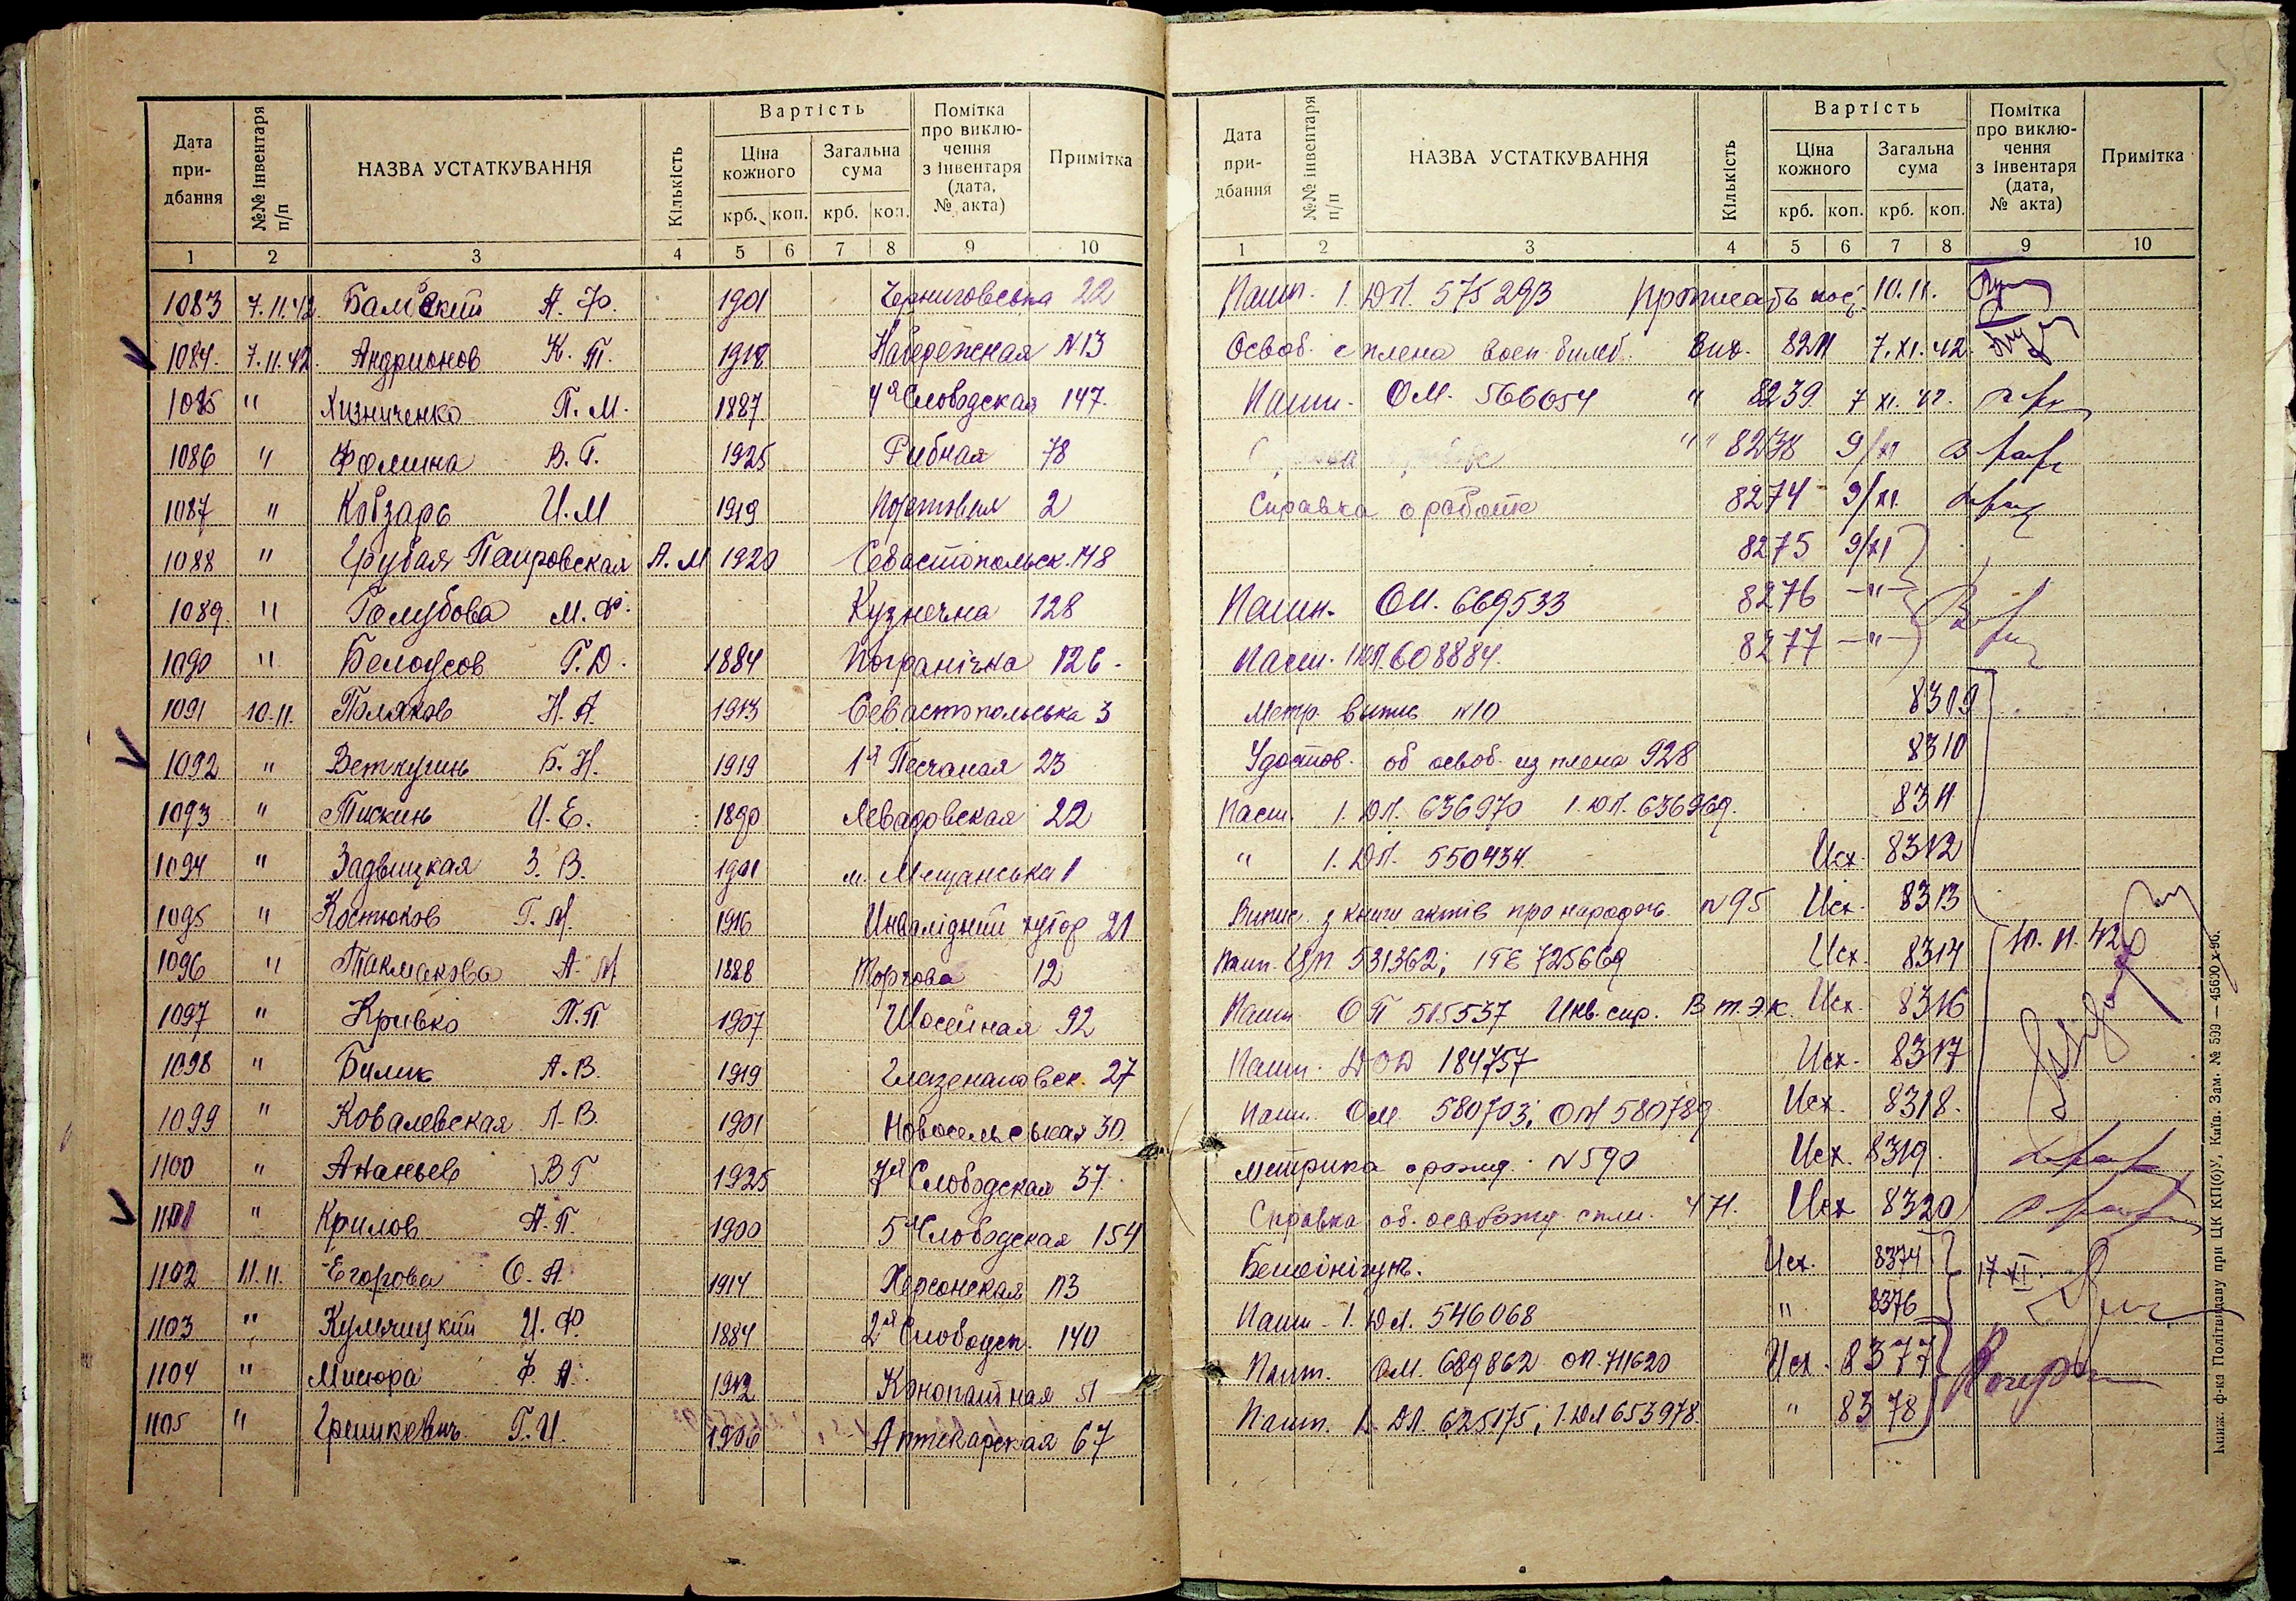 Дата придбання №№ інвентаря п/п НАЗВА УСТАТКУВАННЯ Кількість Вартість Ціна кожного Загальна сума крб. коп. крб. коп. Помітка про виключення з інвентаря (дата, № акта) Примітка
1 2 3 4 5 6 7 8 9 10
1083 7.11.42 А. Ф. 1901 Черниговська 22
1084. 7.11.42. Андрионов К. П. 1918 Набережная №13
1085 " Хизниченко П. М. 1887 4я Слободская 147.
1086 " Фомина В. Г. 1925 Рибная 78
1087 " Кобзарь И. М 1919 Портовая 2
1088 " Грубая А. М 1920 Севастопольск. 148
1089. " Голубова М. Ф. Кузнечна 128
1090 " Белоусов Г. D. 1884 Погранічна 126.
1091 10.11. Поляков Н. А. 1913 Севастопольська 3
1092 " Б. Н. 1919 1я Песчаная 23
1093 " Пискинь И. Е. 1890 Левадовская 22
1094 " Задвицкая З. В. 1901 м. Мещанська 1
1095 " Костюков Г. М. 1916 Инвалідний хутор 21
1096 " Токмакова А. М 1888 Торгова 12
1097 " Кривко П. П 1907 Шосейная 92
1098 " Билик А. В. 1919 Глазенаповск. 27
1099 " Ковалевская Л. В. 1901 Новосельськая 30.
1100 " Ананьев В Г 1925 7я Слободская 37.
1101 " Крилов А. П. 1900 5 Слободская 154
1102 11.11. Егорова О. А. 1914 Херсонская 113
1103 " И. Ф. 1884 2я Слободск. 140
1104 " Мисюра Ф. А. 1912 Конопатная 51
1105 " Грешкевич Г. И. 1906 Аптекарская 67
Дата придбання №№ інвентаря п/п НАЗВА УСТАТКУВАННЯ Кількість Вартість Ціна кожного Загальна сума крб. коп. крб. коп. Помітка про виключення з інвентаря (дата, № акта) Примітка
1 2 3 4 5 6 7 8 9 10
Пашп. 1. DЛ. 575293 прописать 10.11.
Освоб. с плена воен. Вих. 8211 7.XI.42.
Пашп. ОМ. 566054 " 8239 7 XI. 42.
" 8238 9/XI
Справка о работе 8274 9/XI.
8275 9/XI
Пашп. ОП. 669533 8276 —"—
Пасп. 608884. 8277 —"—
Метр. випис №10 8309
Удостов. об освоб. из плена 928 8310
Пасп. 1. DЛ. 636970 1. DЛ. 636969. 8311
" 1. DЛ. 550434. Исх. 8312
Випис. з книги актів про народж. №95 Исх. 8313
Пашп. 531362; ІТЕ 725669 Исх. 8314 10.11.42
Пашп. ОП 515537 Инв. спр. В т. э. к. Исх. 8316
Пашп. DОD 184757 Исх. 8317
Пашп. ОМ. 580703; ОП 580789 Исх. 8318.
метрика о рожд. №590 Исх. 8319.
Справка об. освобожд. с плен. 471. Исх 8320
Исх. 8374 17 XI.
Пашп. 1. DЛ. 546068 " 8376
Пашп. ОМ. 689862 ОП. 711620 Исх. 8377
Пашп. 1. DЛ. 625175; 1. DЛ 653978. " 8378
Книж. ф-ка Політвидаву при ЦК КП(б)У, Київ. Зам. № 599 — 45600 х 96.